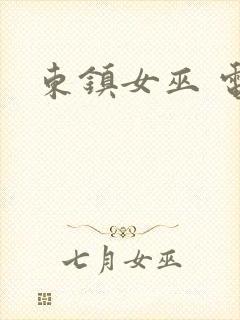 東鎮女巫 電
七月女巫